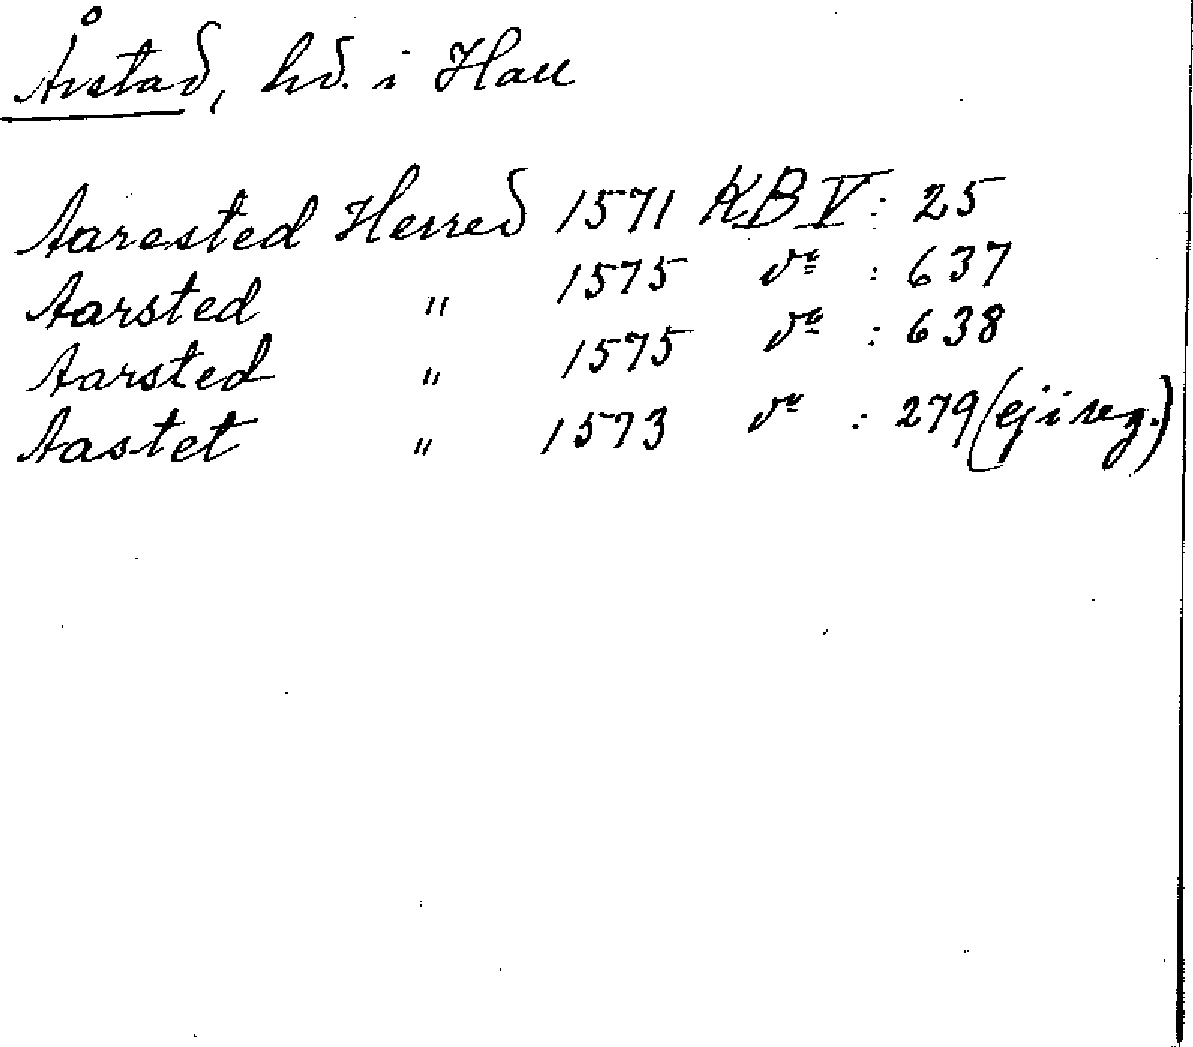 Årstad, hd. i Hall
Aarested Herred 1571 KB V: 25
Aarsted " 1575 do : 637
Aarsted " 1575 do : 638
Aastet " 1573 do : 279 (ej i reg.)